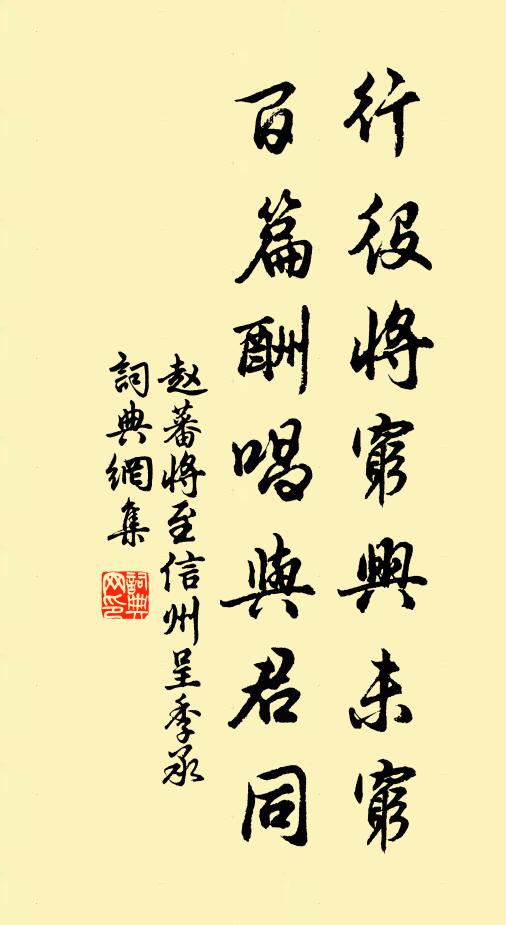 行役將窮興未窮
百篇酬唱與君同
赵蕃將至信州呈季承
詞典網集
詞典網印